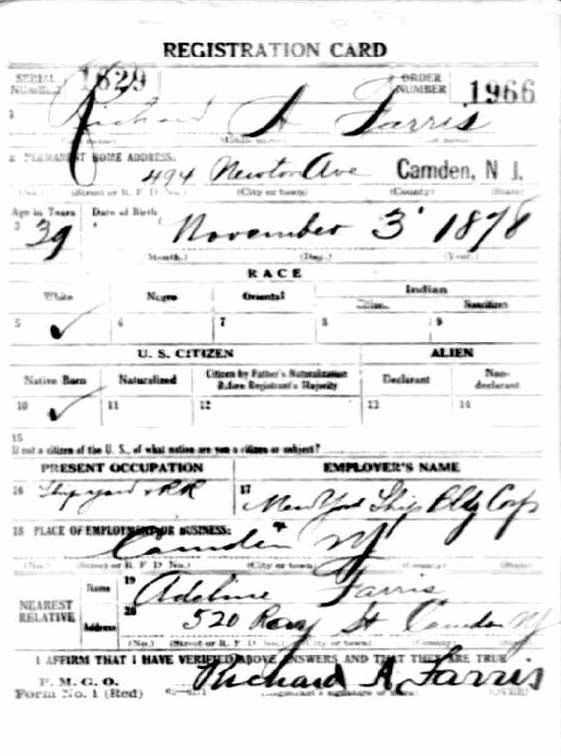 REGISTRATION CARD
SERIAL NUMBER 1829 ORDER NUMBER 1966
1 Richard A Farris
2 PERMANENT HOME ADDRESS:
494 Newton Ave Camden, N J.
(No.) (Street or R. F. D. No.) (City or town) (County) (State)
Age in Years Date of Birth
3 39 4 November 3 1878
(Month.) (Day.) (Year.)
RACE
White Negro Oriental Indian
Citizen Noncitizen
5 ✓ 6 7 8 9
U. S. CITIZEN ALIEN
Native Born Naturalized Citizen by Father's Naturalization Before Registrant's Majority Declarant Non-declarant
10 ✓ 11 12 13 14
15
If not a citizen of the U. S., of what nation are you a citizen or subject?
PRESENT OCCUPATION EMPLOYER'S NAME
16 Shipyard RR 17 New York Ship Bldg Corp
18 PLACE OF EMPLOYMENT OR BUSINESS:
Camden NJ
(No.) (Street or R. F. D. No.) (City or town) (County) (State)
NEAREST RELATIVE Name 19 Adeline Farris
Address 20 520 St Camden NJ
(No.) (Street or R. F. D. No.) (City or town) (County) (State)
I AFFIRM THAT I HAVE VERIFIED ABOVE ANSWERS AND THAT THEY ARE TRUE
P. M. G. O.
Form No. 1 (Red) Richard A. Farris
(Registrant's signature or mark) (OVER)